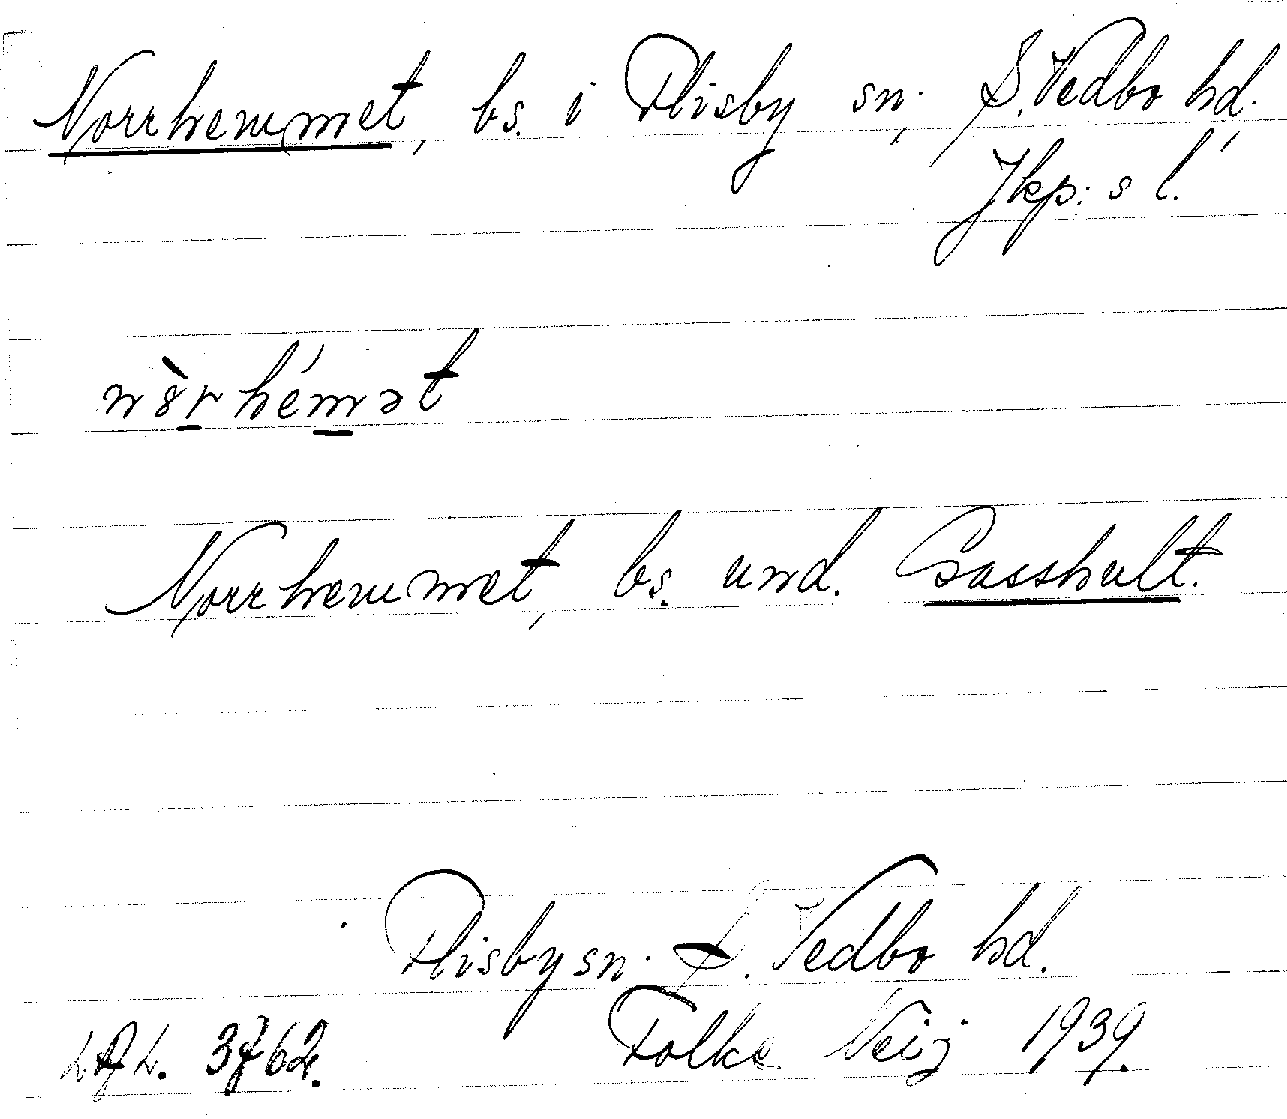 Norrhemmet, bs. i Flisby sn, S. Vedbo hd.
Jkp:s l.
Norrhemmet, bs. und. Gasshult.
Flisby sn. S. Vedbo hd.
Folke Neij 1939.
3762.